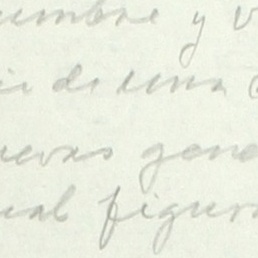 umbre y v
ie de una
uevas gene
ual figura